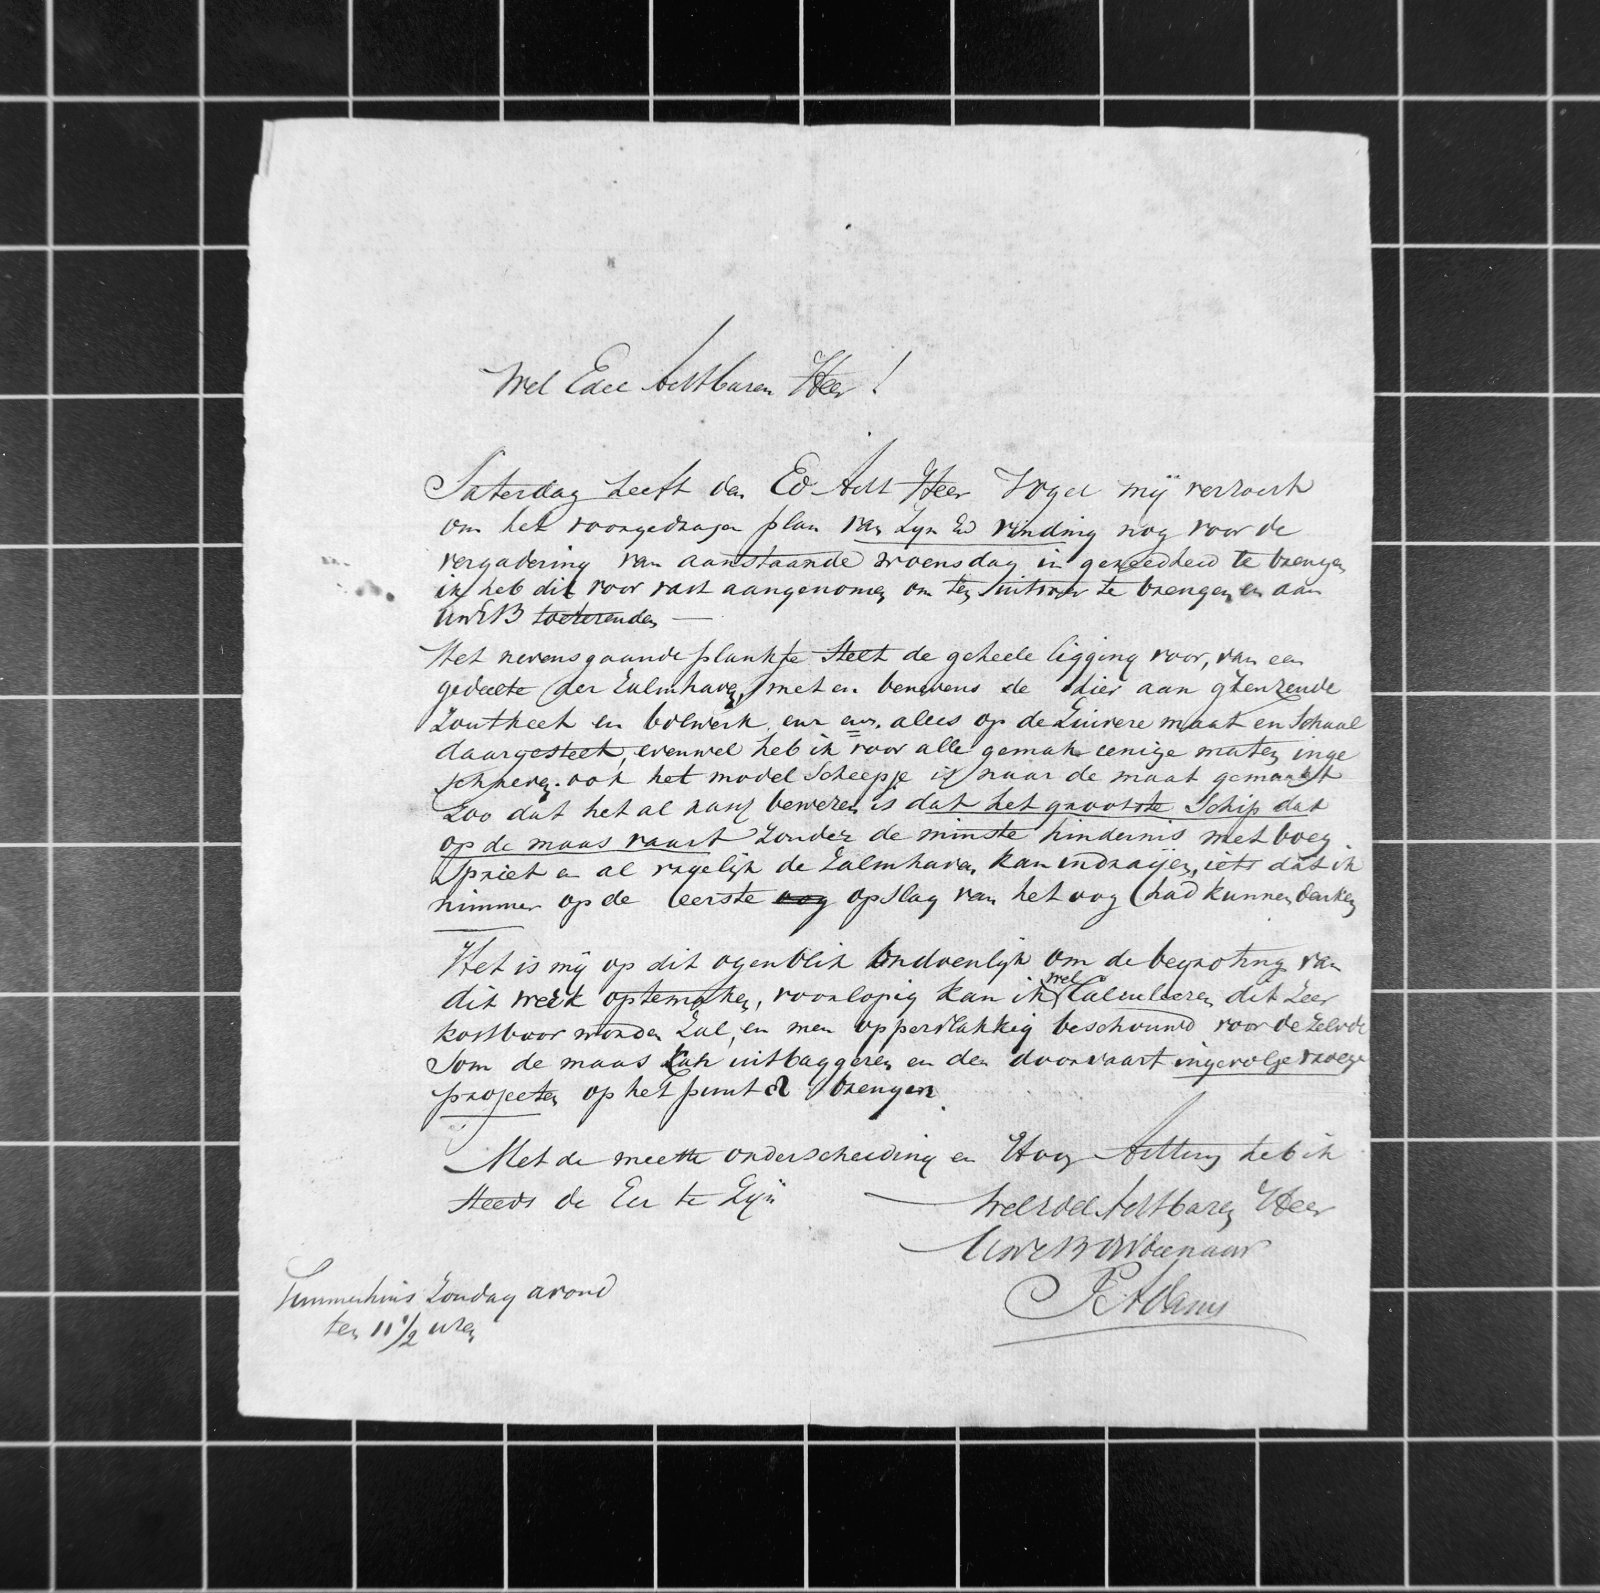 Wel Edel Achtbaren Heer!
Saterdag heeft den Ed Acht Heer Vogel mij verzocht
om het voorgedragen plan van Zyn Ed vinding nog voor de
vergadering van aanstaande woensdag in gereedheid te brengen
ik heb dit voor vast aangenomen om ten uitvoer te brengen en aan
UwEB toetezenden
Het nevensgaande plankje stelt de geheele ligging voor, van een
gedeelte der Zalmhaven, met en benevens de hier aan grenzende
Zoutkeet en bolwerk enz enz. alles op de Zuivere maat en Schaal
daargestelt, evenwel heb ik voor alle gemak eenige maten inge
schreven. ook het model Scheepje is naar de maat gemaakt
Zoo dat het al ras bewezen is dat het grootste Schip dat
op de maas vaart Zonder de minste hindernis met boeg
Spriet en al vagelijk de Zalmhaven kan indraaijen, iets dat ik
nimmer op de eerste oog opslag van het oog had kunnen denken
Het is mij op dit ogenblik ondoenlijk om de begroting van
dit werk optemaken, voorlopig kan ik wel Calculeeren dit Zeer
kostbaar worden Zal, en men oppervlakkig beschouwd voor de Zelvde
Som de maas kan uitbaggeren en den doorvaart ingevolge vroege
projecten op het punt a brengen.
Met de meeste onderscheiding en Hoog Achting heb ik
steeds de Eer te Zijn
WelEdel Achtbaren Heer
UweB DWdienaar
P Adams
Timmerhuis Zondag avond
ten 11 1/2 uren